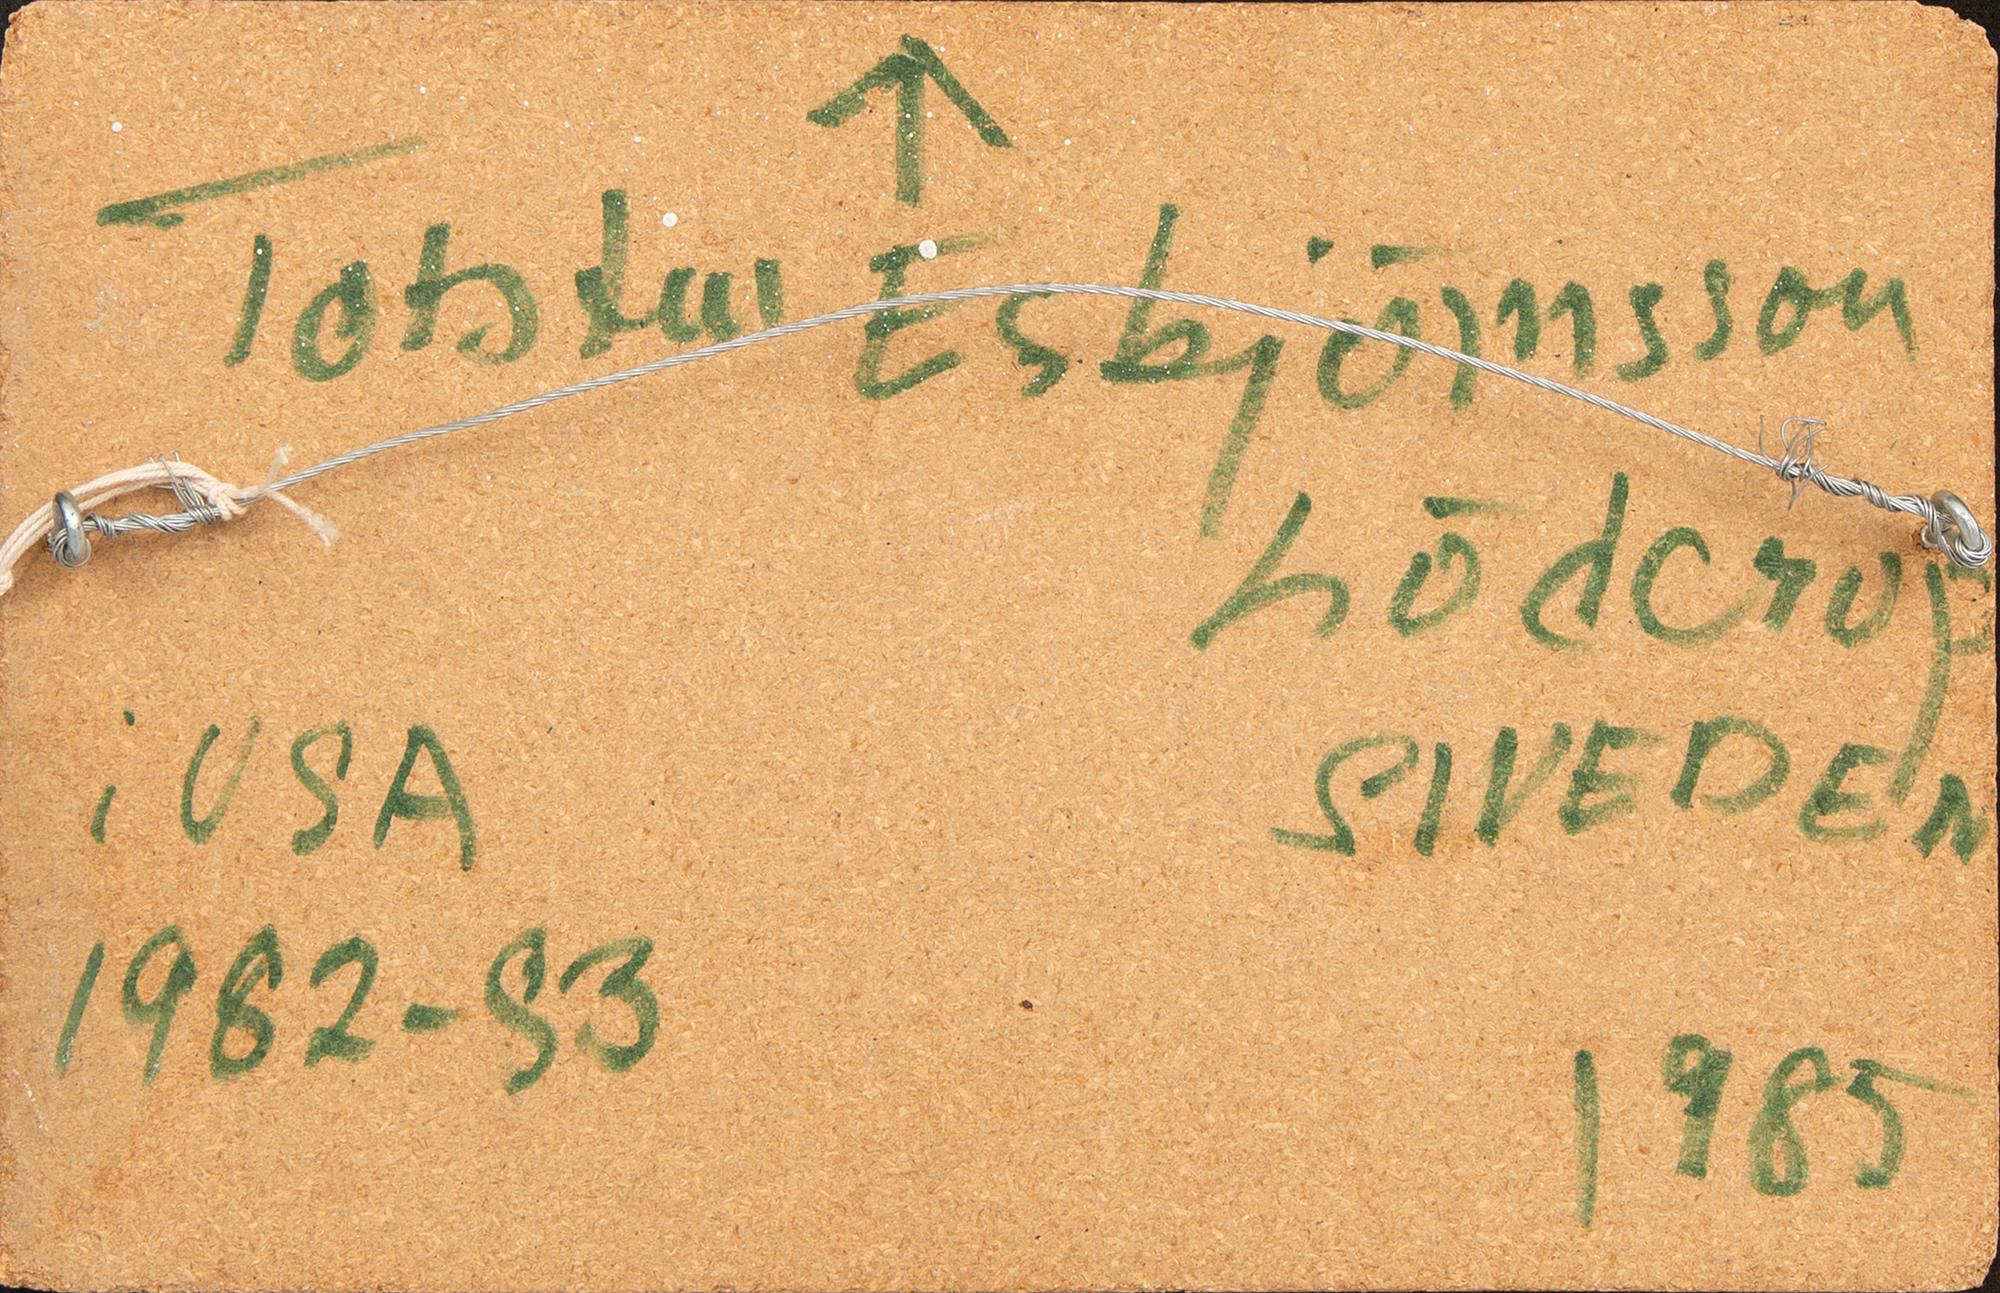 Torsten Esbjörnsson
Löderup
SWEDEN
i USA
1982-83
1985